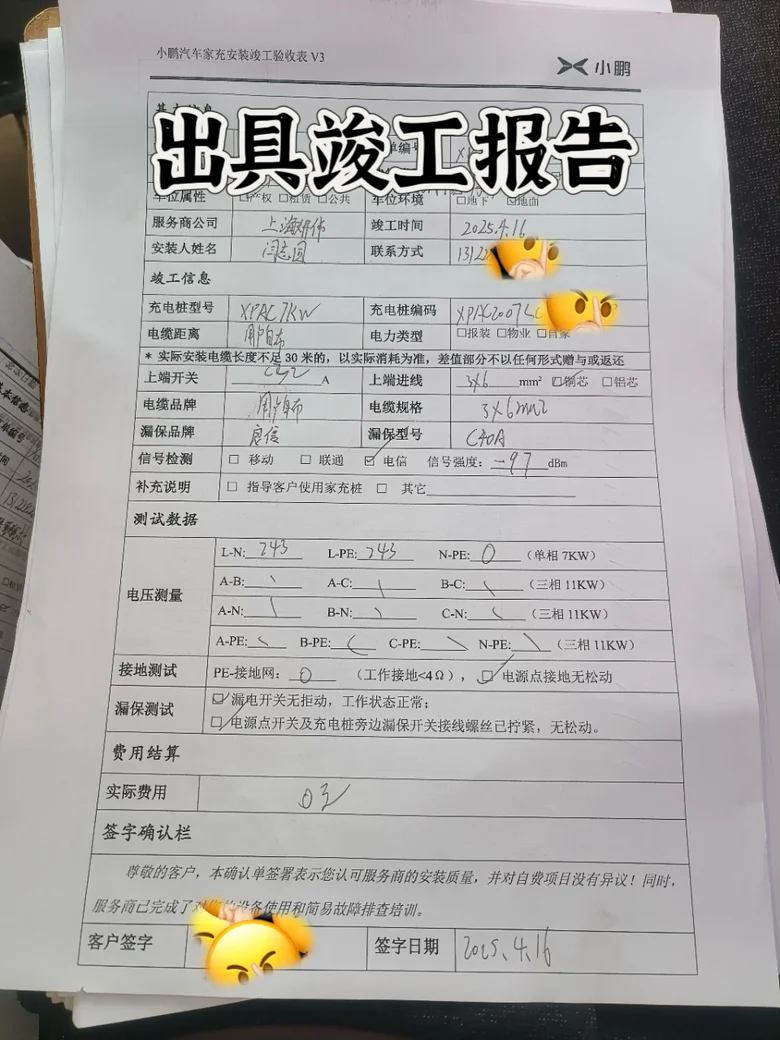 小鹏汽车家充安装竣工验收表 V3
小鹏
出具竣工报告
车位属性 □产权 □租赁 □公共 车位环境 □地下 ☑地面
服务商公司 上海 竣工时间 2025.4.16
安装人姓名 闫志国 联系方式 1312
竣工信息
充电桩型号 XPAC7KW 充电桩编码 XPAC2007
电缆距离 用户自布 电力类型 □报装 □物业 □自家
* 实际安装电缆长度不足 30 米的，以实际消耗为准，差值部分不以任何形式赠与或返还
上端开关 A 上端进线 3X6 mm² ☑铜芯 □铝芯
电缆品牌 用户自布 电缆规格 3X6mm2
漏保品牌 良信 漏保型号 C40A
信号检测 □ 移动 □ 联通 ☑ 电信 信号强度：-97 dBm
补充说明 □ 指导客户使用家充桩 □ 其它
测试数据
电压测量
L-N: 243 L-PE: 243 N-PE: 0 （单相 7KW）
A-B: \ A-C: \ B-C: \ （三相 11KW）
A-N: \ B-N: \ C-N: \ （三相 11KW）
A-PE: \ B-PE: \ C-PE: \ N-PE: \ （三相 11KW）
接地测试 PE-接地网： 0 （工作接地<4Ω），☑ 电源点接地无松动
漏保测试
☑漏电开关无拒动，工作状态正常；
☑电源点开关及充电桩旁边漏保开关接线螺丝已拧紧，无松动。
费用结算
实际费用 0元
签字确认栏
尊敬的客户，本确认单签署表示您认可服务商的安装质量，并对自费项目没有异议！同时，
服务商已完成了对设备使用和简易故障排查培训。
客户签字 签字日期 2025.4.16